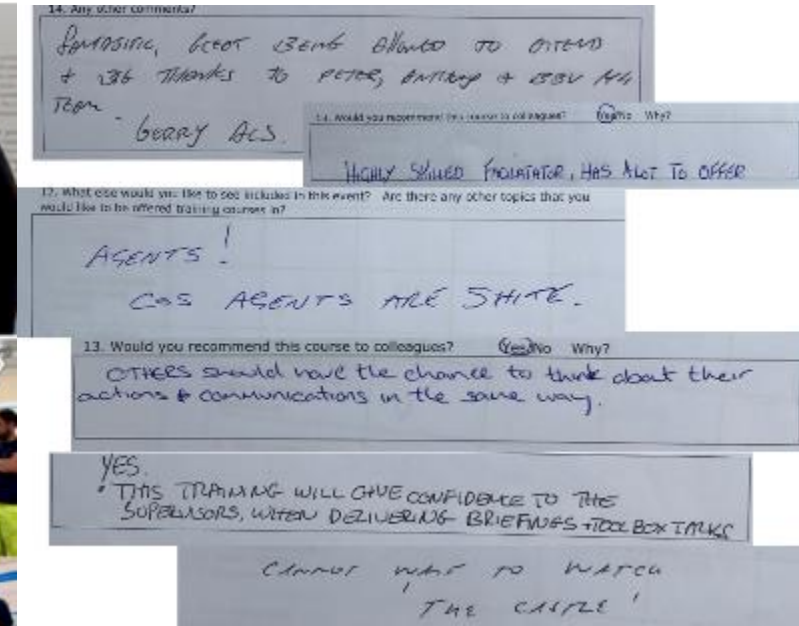 14. Any other comments?
FANTASTIC, GREAT BEING ALLOWED TO ATTEND
+ BIG THANKS TO PETER, ANTHONY + BBV
TEAM
GERRY
14. Would you recommend this course to colleagues? Yes/No Why?
HIGHLY SKILLED FACILITATOR, HAS ALOT TO OFFER
12. What else would you like to see included in this event? Are there any other topics that you
would like to be offered training courses in?
AGENTS!
COS AGENTS ARE SHITE.
13. Would you recommend this course to colleagues? Yes/No Why?
OTHERS should have the chance to think about their
actions & communications in the same way.
YES.
• THIS TRAINING WILL GIVE CONFIDENCE TO THE
SUPERVISORS, WHEN DELIVERING BRIEFINGS + TOOL BOX TALKS
CANNOT WAIT TO WATCH
'THE CASTLE'